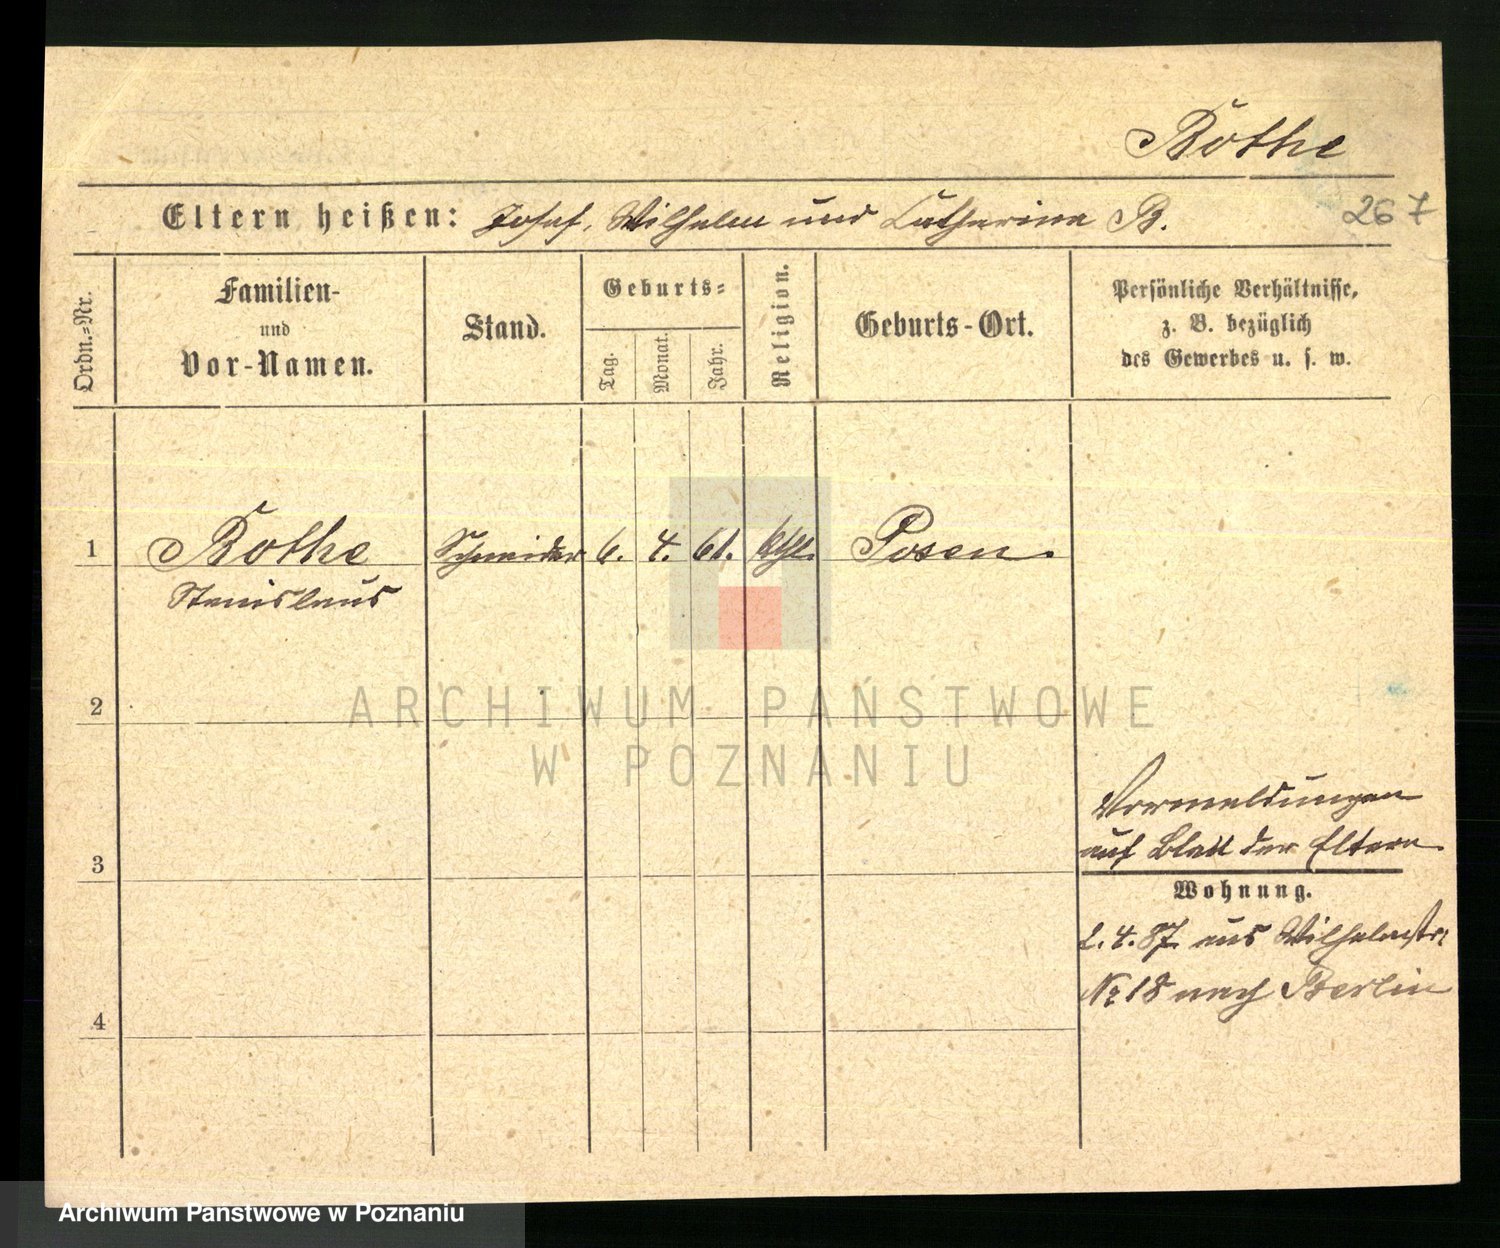 Bothe
Eltern heißen: Josef, Wilhelm und Catharina B.
267
Ordn.=Nr.
Familien-
und
Vor-Namen.
Stand.
Geburts=
Tag.
Monat.
Jahr.
Religion.
Geburts-Ort.
Persönliche Verhältnisse,
z. B. bezüglich
des Gewerbes u. s. w.
1 Bothe Schneider 6. 4. 61. kthl. Posen.
Stanislaus
2
ARCHIWUM PAŃSTWOWE
W POZNANIU
Vormeldungen
auf Blatt der Eltern
3
Wohnung.
2. 4. 87. aus Wilhelmstr.
No 18 nach Berlin
4
Archiwum Państwowe w Poznaniu